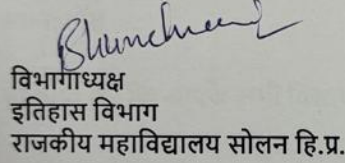 विभागाध्यक्ष
इतिहास विभाग
राजकीय महाविद्यालय सोलन हि.प्र.